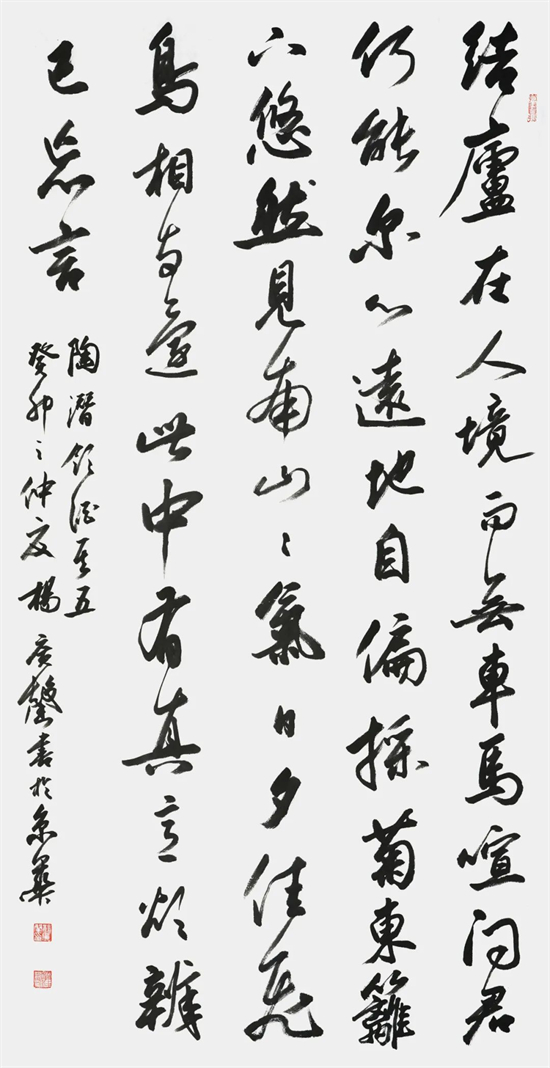 結廬在人境而無車馬喧問君
何能尔心遠地自偏採菊東籬
下悠然見南山〻氣日夕佳飛
鳥相与還此中有真意欲辨
已忘言
陶潛飲酒其五
癸卯之仲夏楊廣馨書於京華